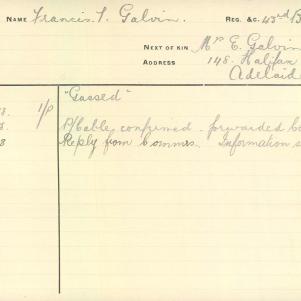 NAME Francis. T. Galvin. REG. &C. 43rd B
NEXT OF KIN Mrs E. Galvin
ADDRESS 148. Halifax
Adelaid
"Gassed"
1/P P/Cable, confirmed forwarded
Reply from Commrs. Information